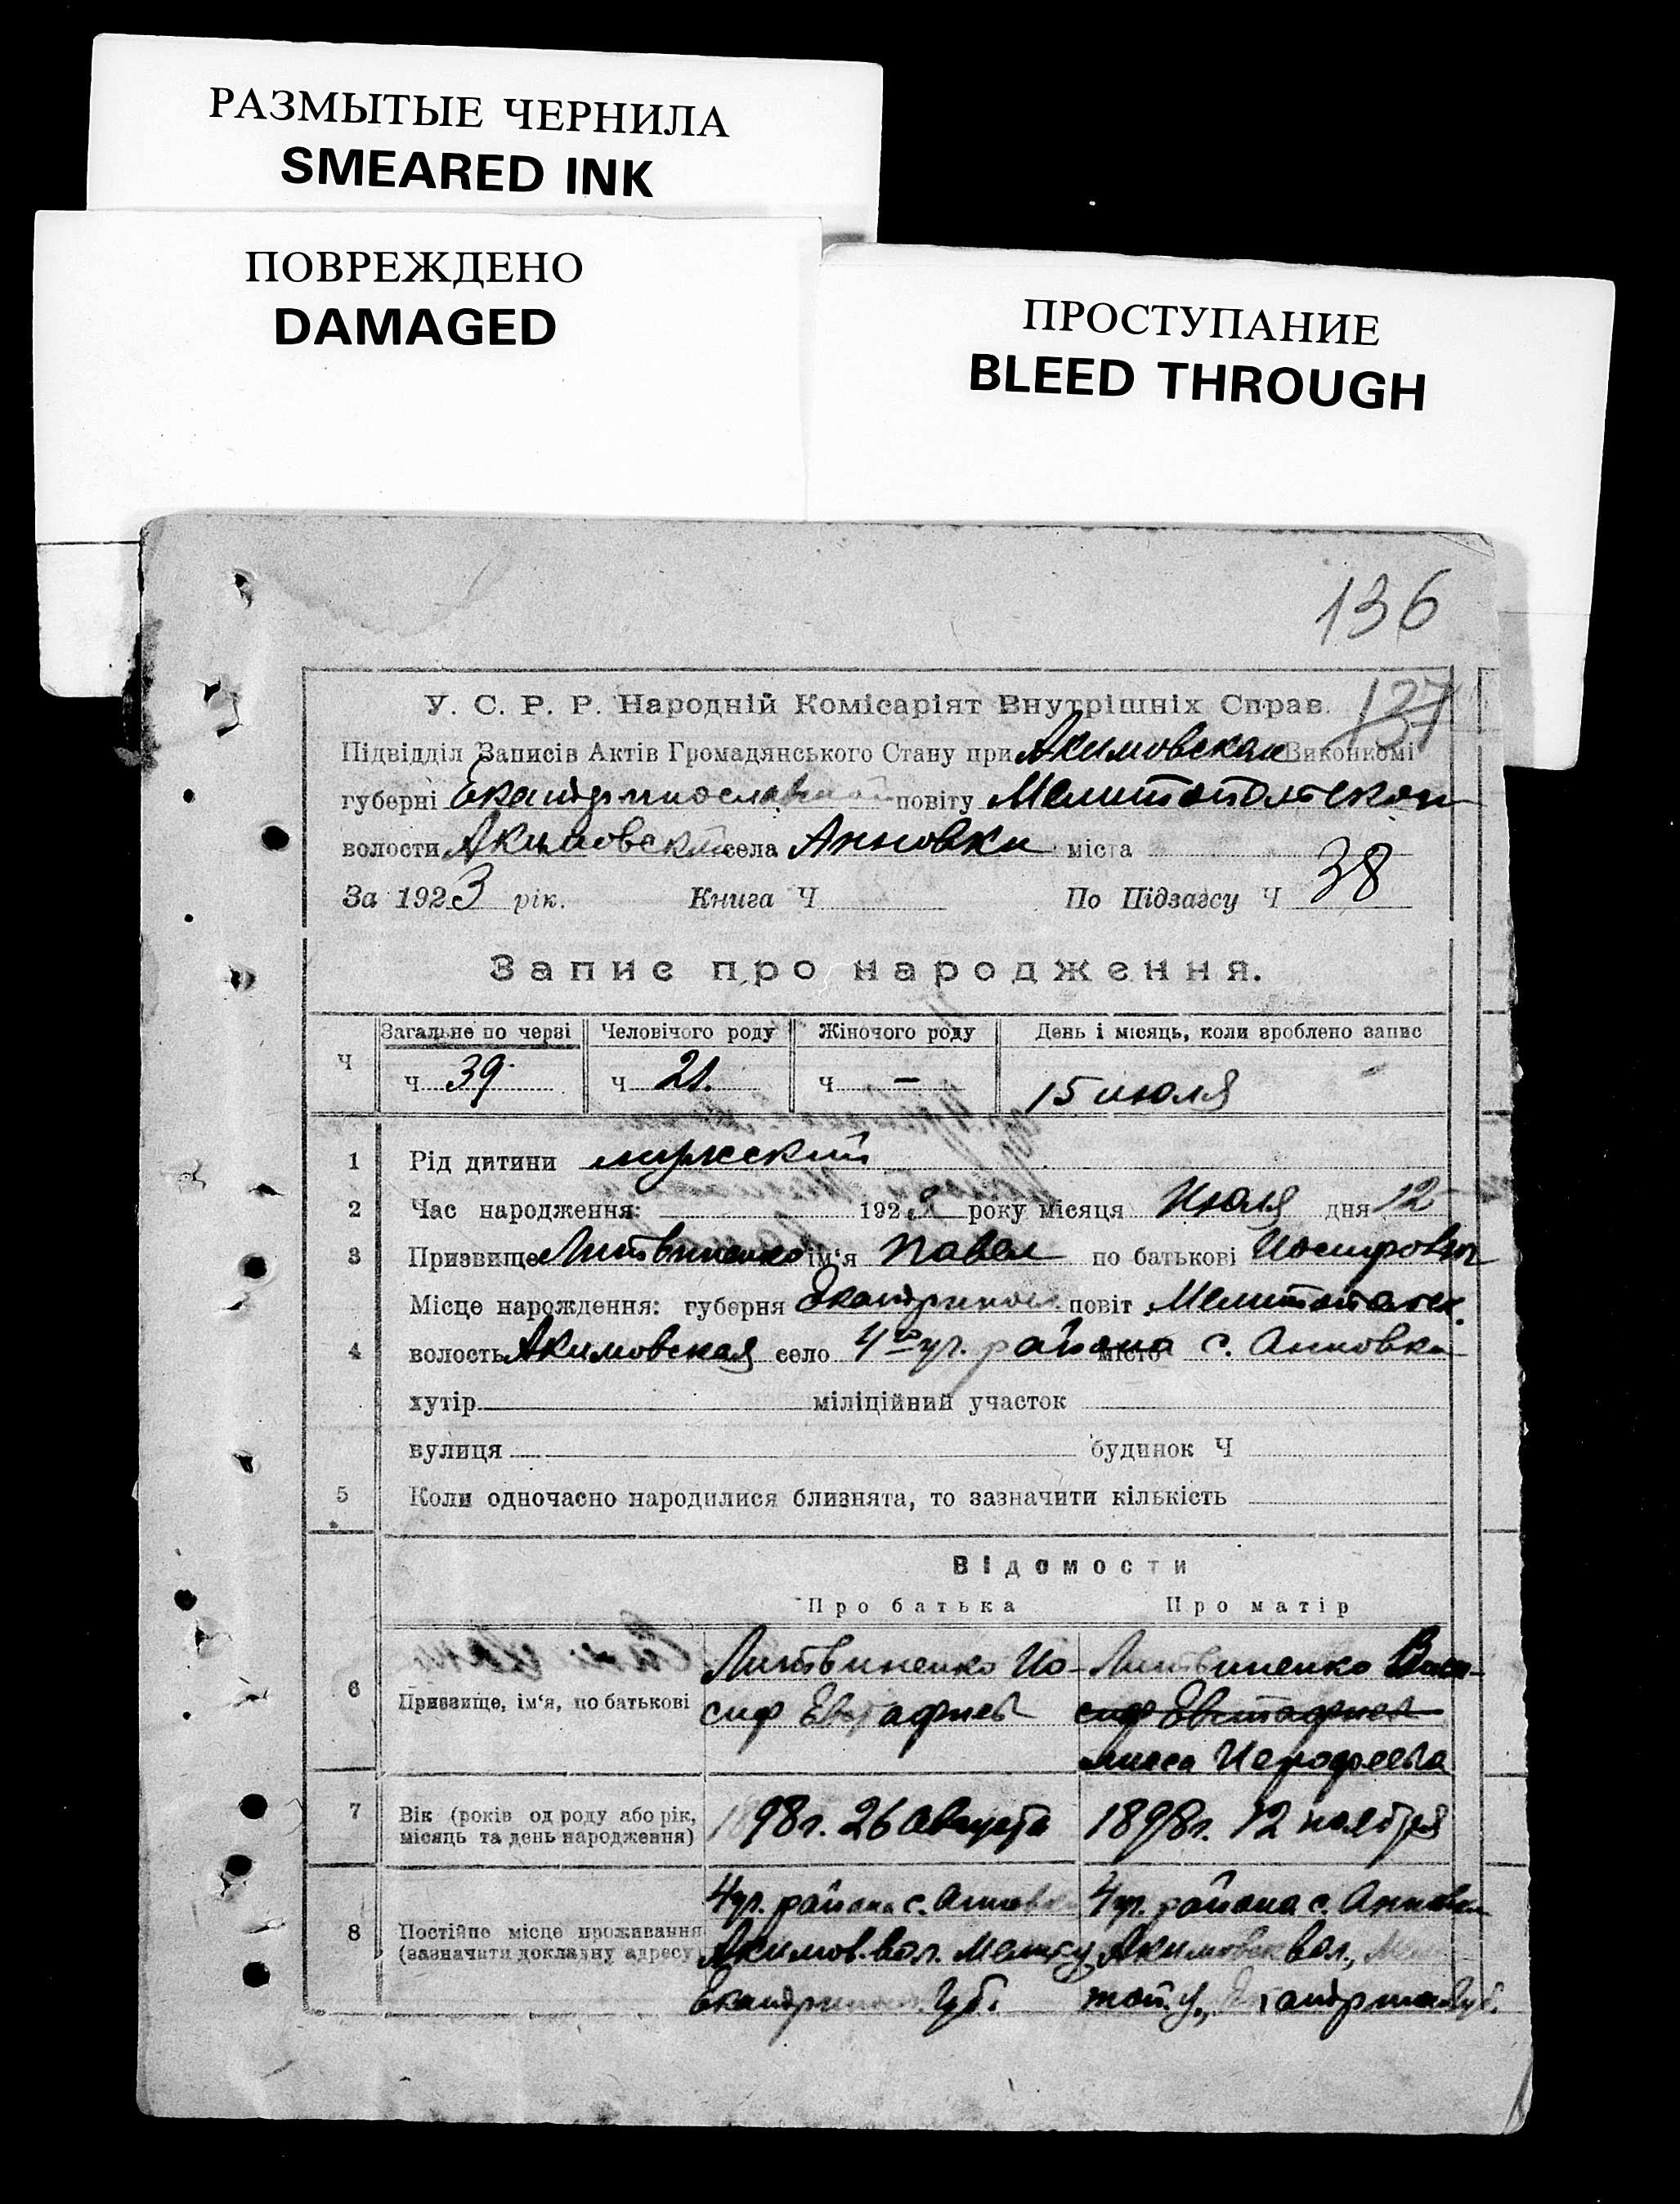 РАЗМЫТЫЕ ЧЕРНИЛА
SMEARED INK
ПОВРЕЖДЕНО
DAMAGED
ПРОСТУПАНИЕ
BLEED THROUGH
136
137
У. С. Р. Р. Народній Комісаріят Внутрішніх Справ.
Підвідділ Записів Актів Громадянського Стану при Акимовском Виконкомі
губерні Екатеринославской повіту Мелитопольском
волости Акимовской села Анновки міста
За 1923 рік. Книга Ч По Підзагсу Ч 38
Запис про народження.
Ч Загальне по черзі Человічого роду Жіночого роду День і місяць, коли зроблено запис
Ч 39 Ч 21. Ч — 15 июля
1 Рід дитини мужский
2 Час народження: 192 року місяця Июля дня 12
3 Призвище Литвиненко ім‘я Павел по батькові Иосифович
Місце нарождення: губерня Екатеринос. повіт Мелитопольск.
4 волость Акимовская село 4го уч. района місто с. Анновки
хутір міліційний участок
вулиця будинок Ч
5 Коли одночасно народилися близнята, то зазначити кількість
Відомости
Про батька Про матір
6 Призвище, ім‘я, по батькові
Литвиненко Ио-
сиф Евстафиев
Литвиненко Васи-
сиф Евстафиев
лиса Иерофеевна
7 Вік (років од роду або рік,
місяць та день народження)
1898г. 26 августа
1898г. 12 ноября
8 Постійне місце проживання
(зазначити докладну адресу)
4 уч. района с. Анновки
Акимов. вол. Мелит у
Екатеринос. губ.
4 уч. района с. Анновки
Акимовск вол., Мели
топ. у.,